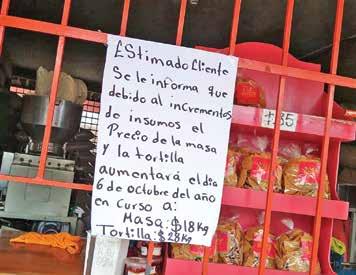 EStimado Cliente
Se le informa que
debido al incrementos
de insumos el
Precio de la masa
y la tortilla
aumentará el dia
6 de octubre del año
en Curso a:
Masa: $18Kg
Tortilla: $28Kg
$35